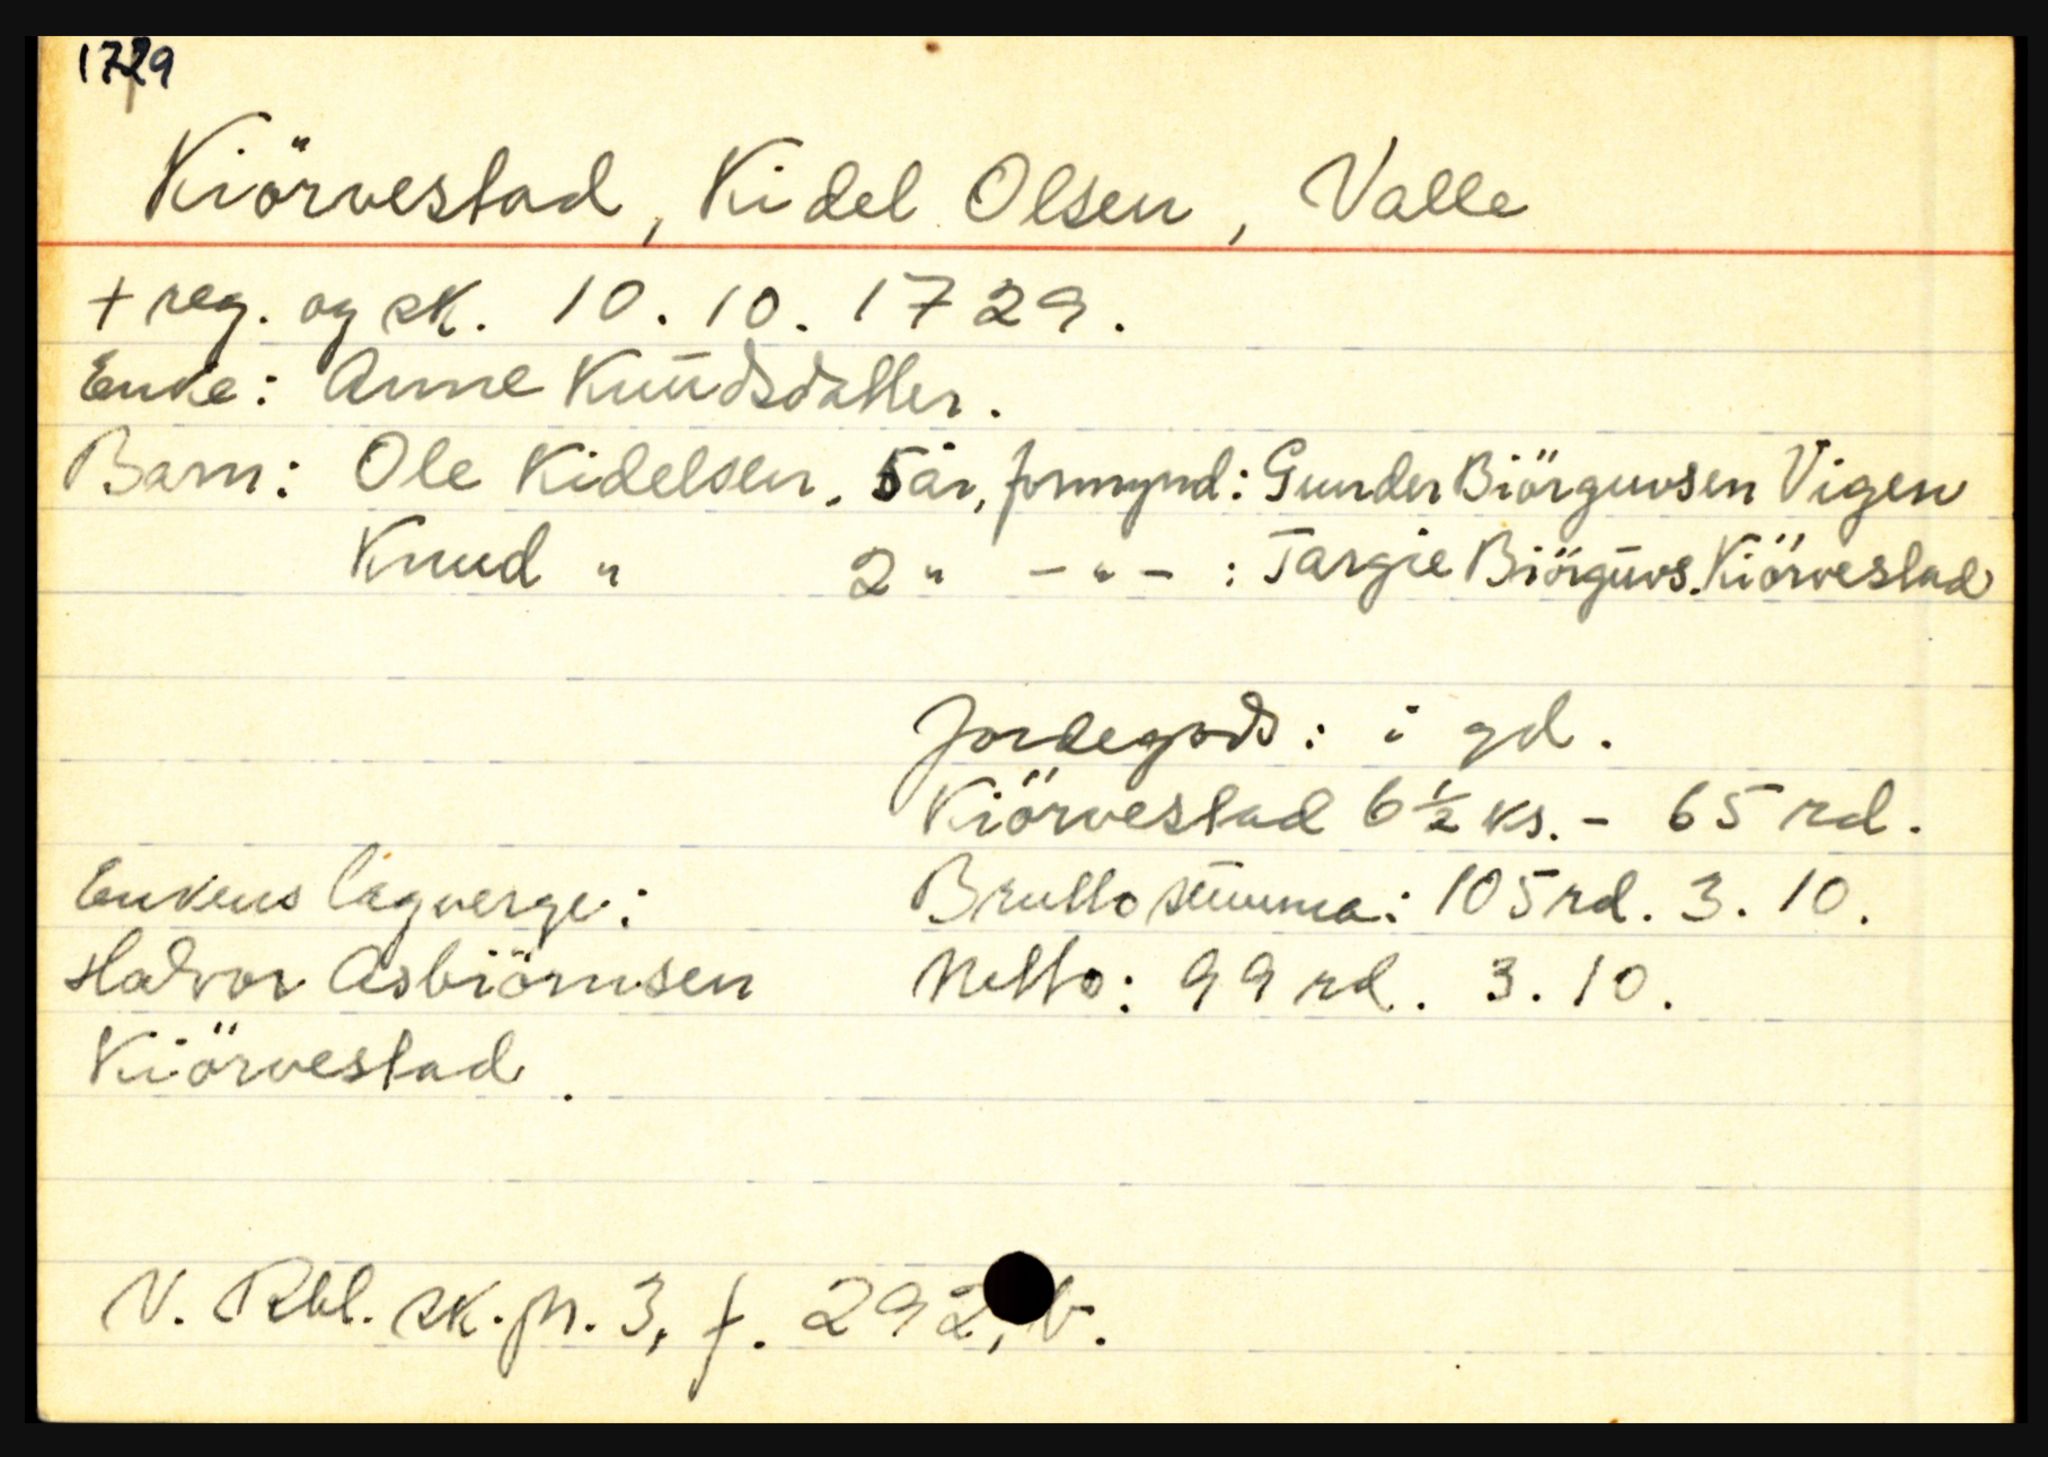 1729
Kiörvestad, Kidel Olsen, Valle
+ reg. og sk. 10.10.1729.
Enke: Anne Knudsdatter.
Barn: Ole Kidelsen, 5 år, formynd: Gunder Biörguvsen Vigen
Knud " 2 " -"- : Targie Biörguvs. Kiörvestad
Jordegods: i gd.
Kiörvestad 6½ ks. - 65 rd.
Enkens lagverge: Brutto summa: 105 rd. 3. 10.
Halvor Asbiörnsen Netto: 99 rd. 3. 10.
Kiörvestad.
N. Rbl. sk. pr. 3, f. 292, b.